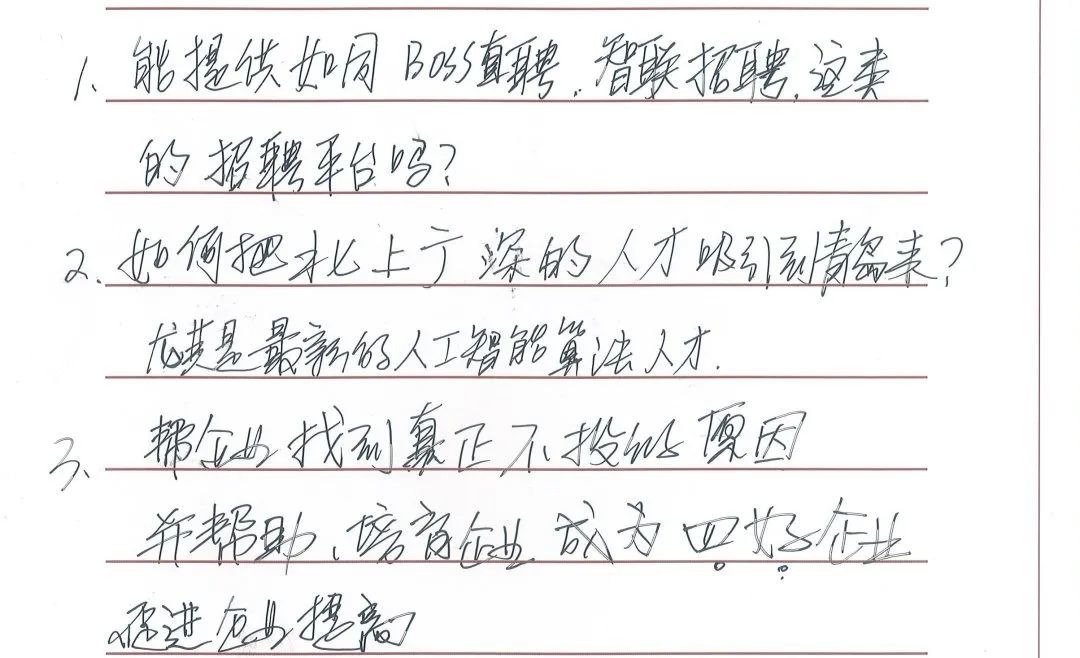 1、能提供如同BOSS直聘、智联招聘、这类
的招聘平台吗？
2、如何把北上广深的人才吸引到青岛来？
尤其是最新的人工智能算法人才.
3、帮企业找到真正不投的原因
并帮助、培育企业成为四好企业
促进企业提高